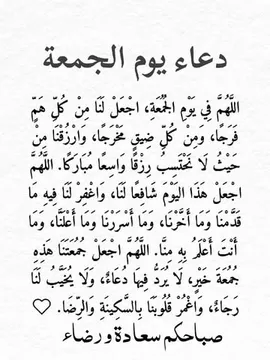 دعاء يوم الجمعة
اللَّهُمَّ فِي يَوْمِ الجُمُعَةِ، اجْعَلْ لَنَا مِنْ كُلِّ هَمٍّ
فَرَجًا، وَمِنْ كُلِّ ضِيقٍ مَخْرَجًا، وَارْزُقْنَا مِنْ
حَيْثُ لَا نَحْتَسِبُ رِزْقًا وَاسِعًا مُبَارَكًا. اللَّهُمَّ
اجْعَلْ هَذَا اليَوْمَ شَافِعًا لَنَا، وَاغْفِرْ لَنَا فِيهِ مَا
قَدَّمْنَا وَمَا أَخَّرْنَا، وَمَا أَسْرَرْنَا وَمَا أَعْلَنَّا، وَمَا
أَنْتَ أَعْلَمُ بِهِ مِنَّا. اللَّهُمَّ اجْعَلْ جُمُعَتَنَا هَذِهِ
جُمُعَةَ خَيْرٍ، لَا يُرَدُّ فِيهَا دُعَاءٌ، وَلَا يُخَيَّبُ لَنَا
رَجَاءٌ، وَاغْمُرْ قُلُوبَنَا بِالسَّكِينَةِ وَالرِّضَا. ♡
صباحكم سعادة ورضاء